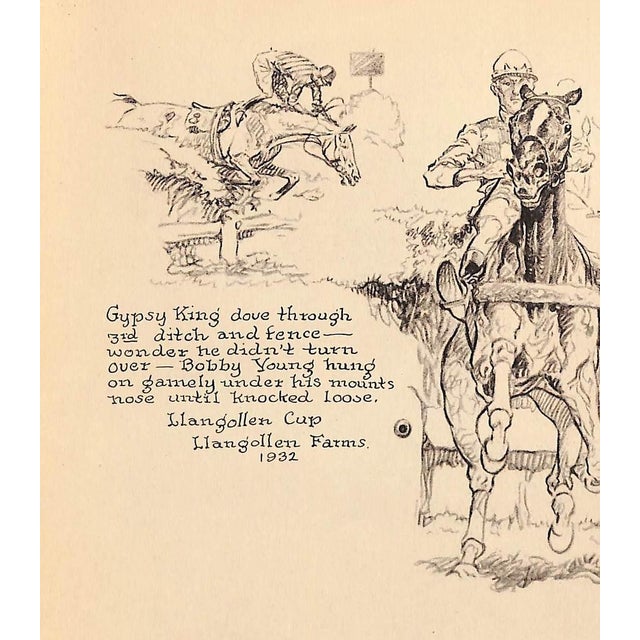 Gypsy King dove through
3rd ditch and fence—
wonder he didn't turn
over — Bobby Young hung
on gamely under his mounts
nose until knocked loose.
Llangollen Cup
Llangollen Farms.
1932